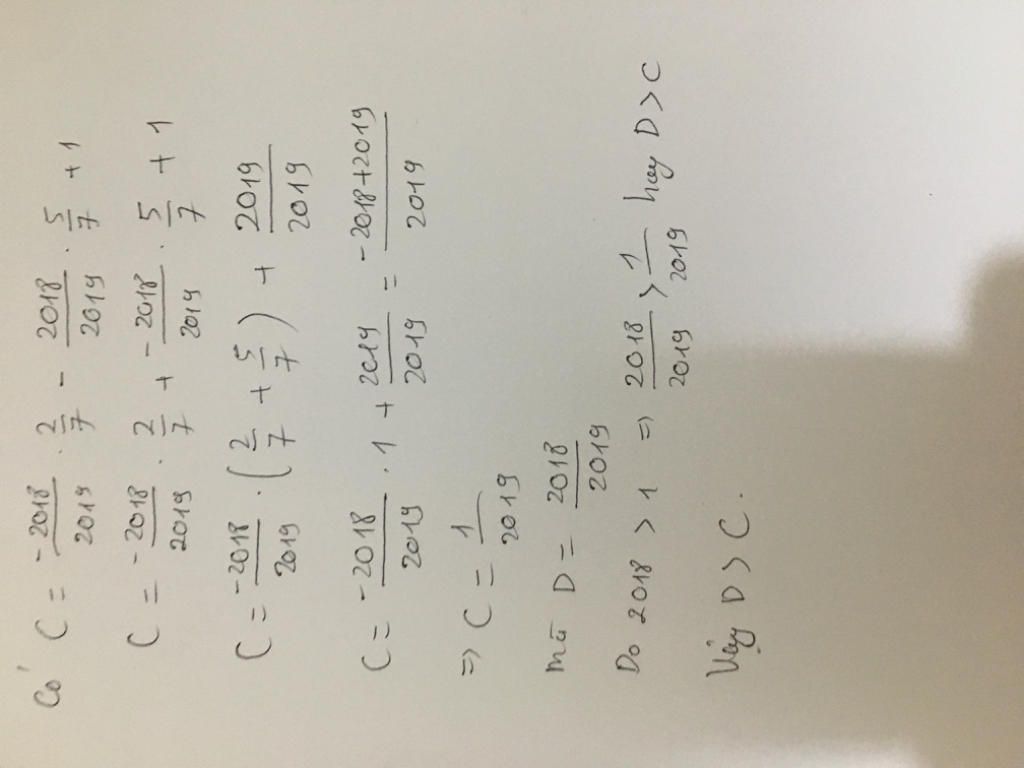 Có C = -2018/2019 . 2/7 - 2018/2019 . 5/7 + 1
C = -2018/2019 . 2/7 + -2018/2019 . 5/7 + 1
C = -2018/2019 . (2/7 + 5/7) + 2019/2019
C = -2018/2019 . 1 + 2019/2019 = -2018+2019/2019
=> C = 1/2019
mà D = 2018/2019
Do 2018 > 1 => 2018/2019 > 1/2019 hay D > C
Vậy D > C.